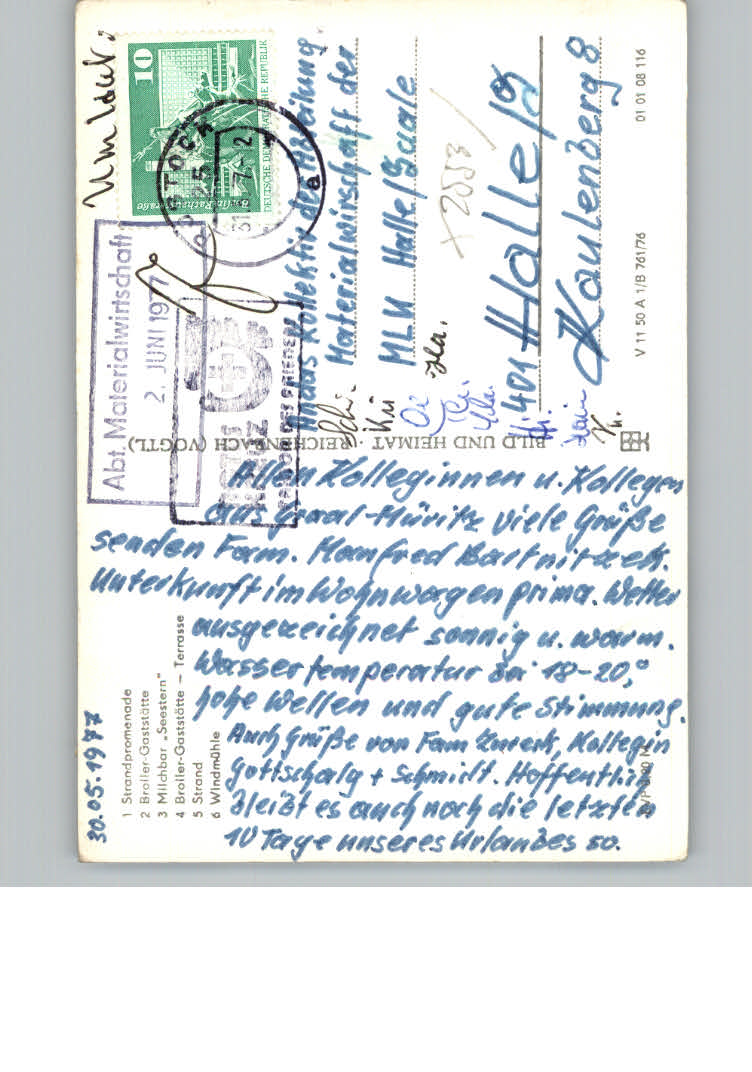 30.05.1977
1 Strandpromenade
2 Broiler-Gaststätte
3 Milchbar „Seestern"
4 Broiler-Gaststätte – Terrasse
5 Strand
6 Windmühle
Allen Kolleginnen u. Kollegen
aus Graal-Müritz viele Grüße
senden Fam. Manfred Bartnitzek.
Unterkunft im Wohnwagen prima. Wetter
ausgezeichnet sonnig u. warm.
Wassertemperatur bei 18–20,°
hohe Wellen und gute Stimmung.
Auch Grüße von Fam. Zureck, Kollegin
Gottschalg + Schmidt. Hoffentlich
bleibt es auch noch die letzten
10 Tage unseres Urlaubes so.
BILD UND HEIMAT · REICHENBACH (VOGTL)
Umlauf.
Abt. Materialwirtschaft
2. JUNI 1977
10
DEUTSCHE DEMOKRATISCHE REPUBLIK
Berlin, Rathausstraße
An das Kollektiv der Abteilung
Materialwirtschaft der
MLU Halle/Saale
401 Halle/S
Kaulenberg 8
V 11 50 A 1/B 761/76
01 01 08 116